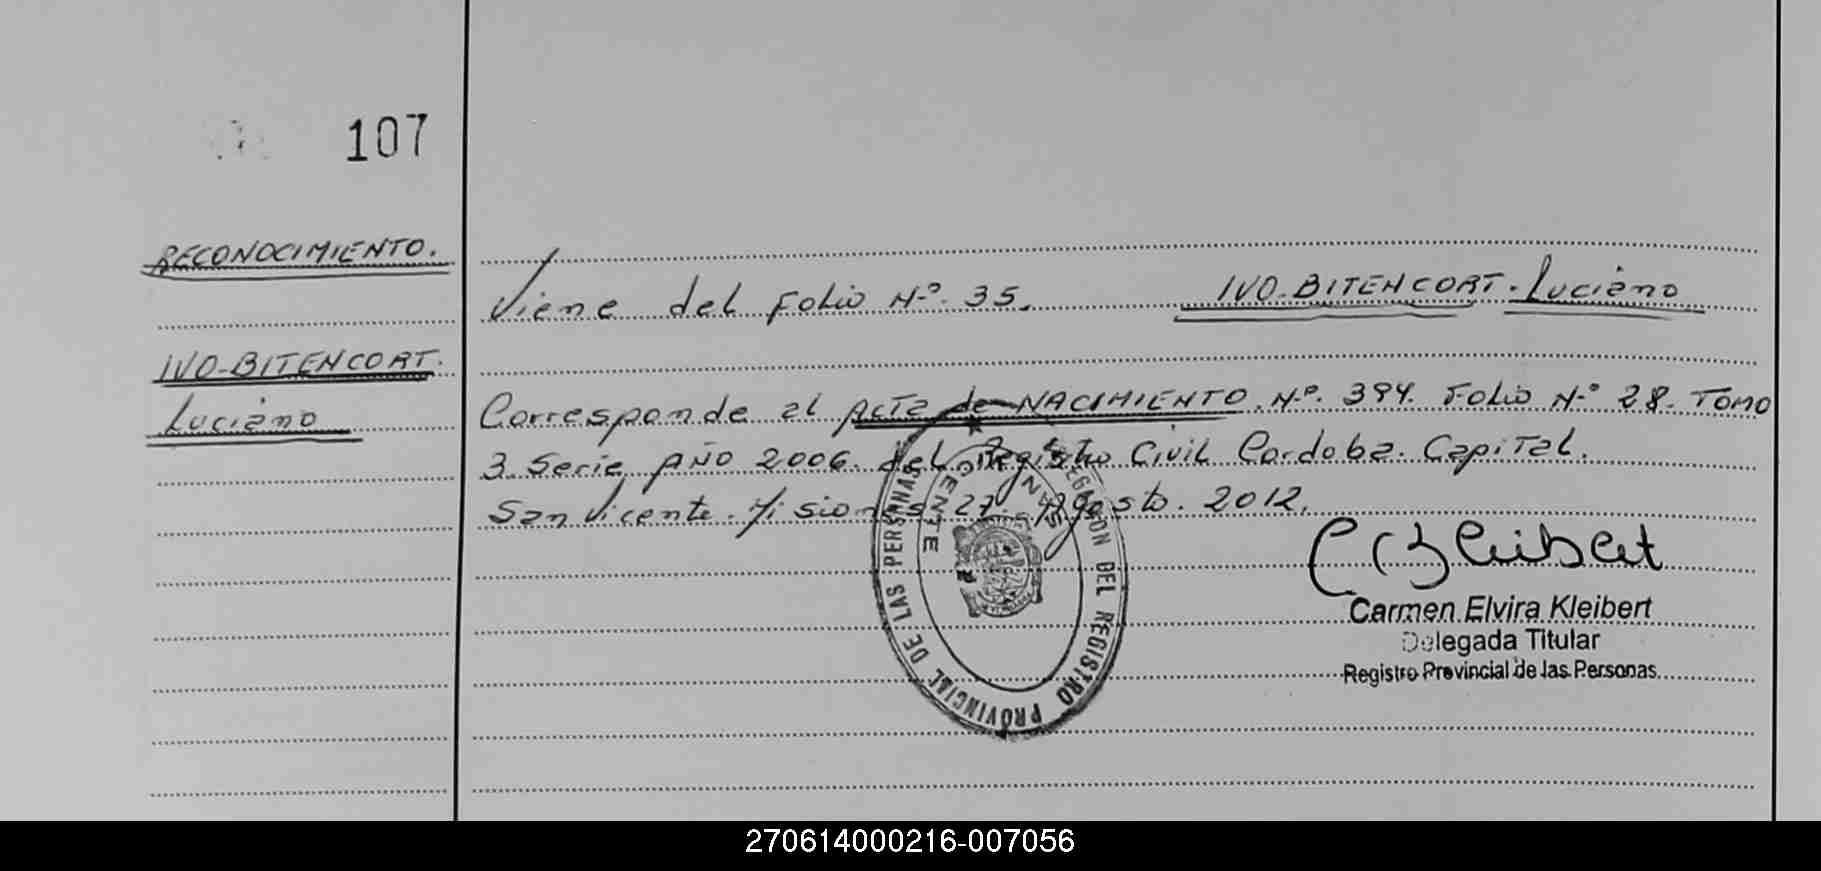 107
RECONOCIMIENTO.
IVO-BITENCORT.
Luciano
Viene del Folio Nº. 35. IVO-BITENCORT. Luciano
Corresponde al Acta de NACIMIENTO. Nº. 394. Folio Nº 28. TOMO
3 Serie AÑO 2006. del Registro Civil Cordoba. Capital.
San Vicente. Misiones 27. Agosto. 2012.
DELEGACION DEL REGISTRO PROVINCIAL DE LAS PERSONAS
SAN VICENTE
Carmen Elvira Kleibert
Delegada Titular
Registro Provincial de las Personas
270614000216-007056